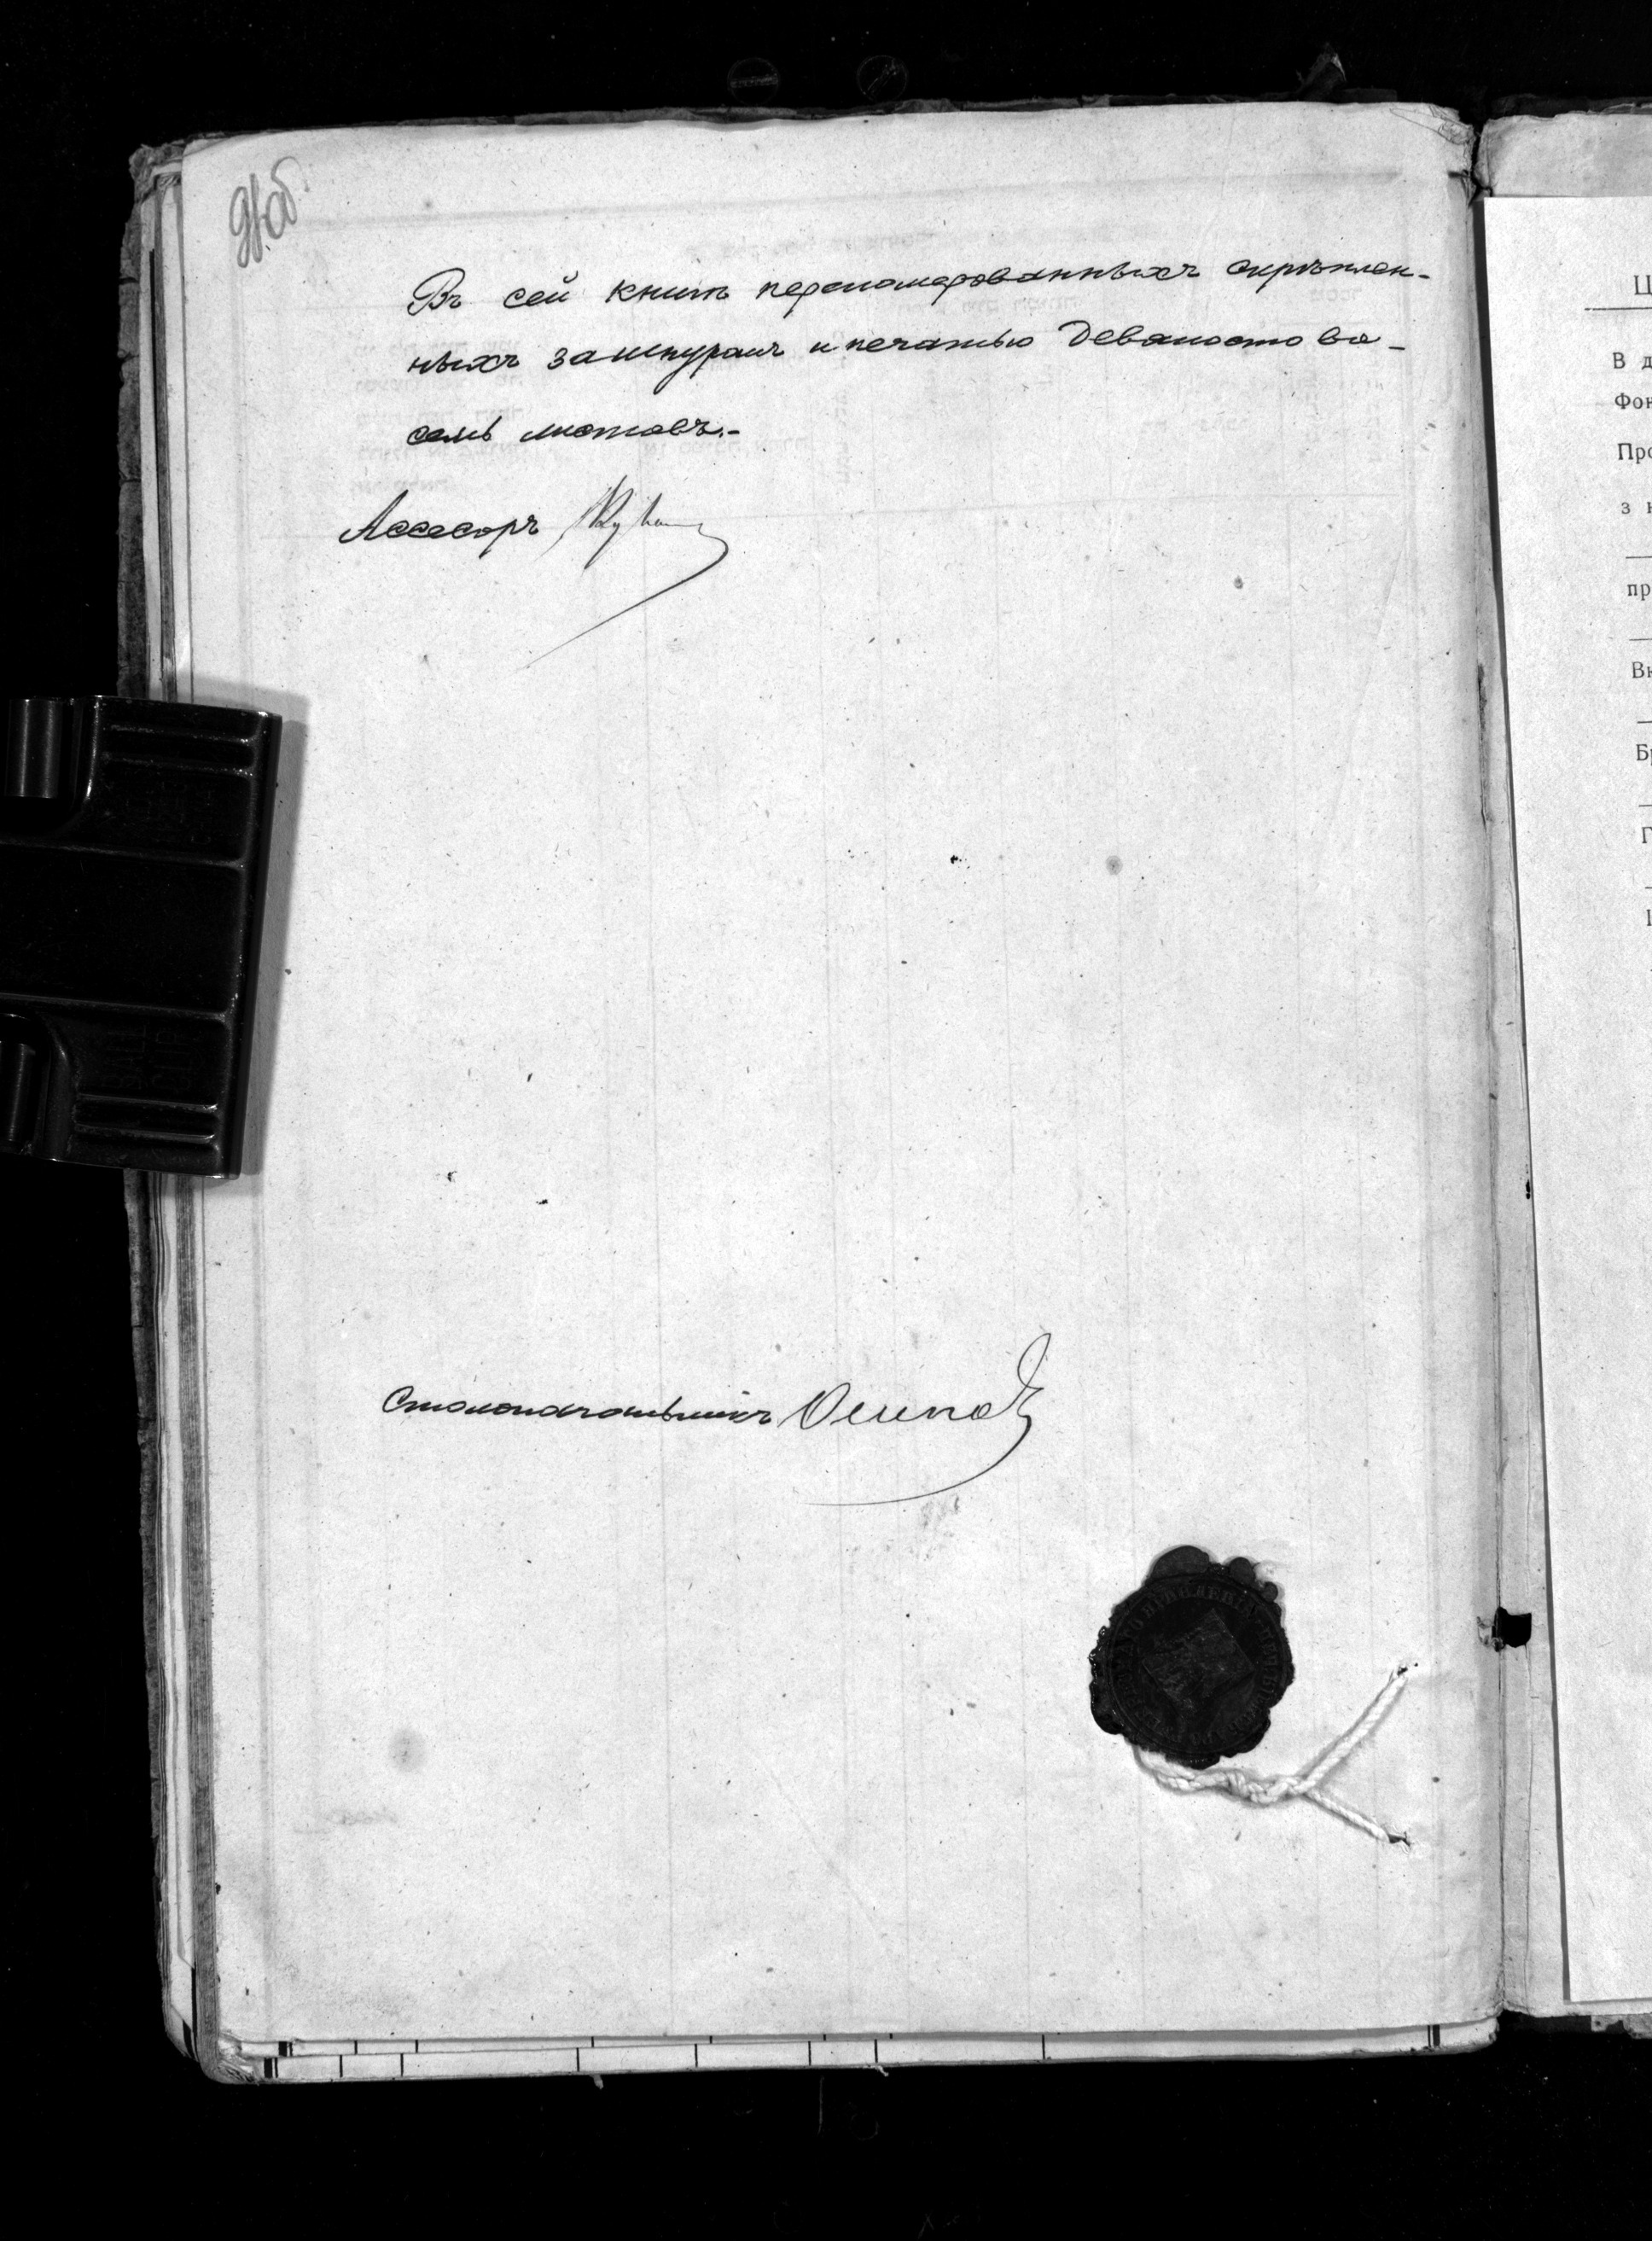 Въ сей книгѣ перономерованныхъ скрѣплен-
ныхъ зашнуромъ и печатью девяносто во-
семь листовъ.-
Ассесоръ
Столоначальникъ Осипов
Ц
В д
Фон
Про
з н
пр
Вн
Бр
Г